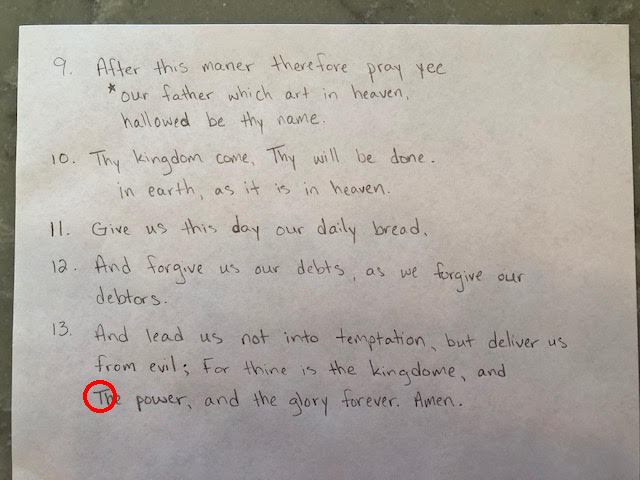 9. After this maner therefore pray yee
*our father which art in heaven,
hallowed be thy name.
10. Thy kingdom come, Thy will be done.
in earth, as it is in heaven.
11. Give us this day our daily bread.
12. And forgive us our debts, as we forgive our
debtors.
13. And lead us not into temptation, but deliver us
from evil; For thine is the kingdome, and
The power, and the glory forever. Amen.